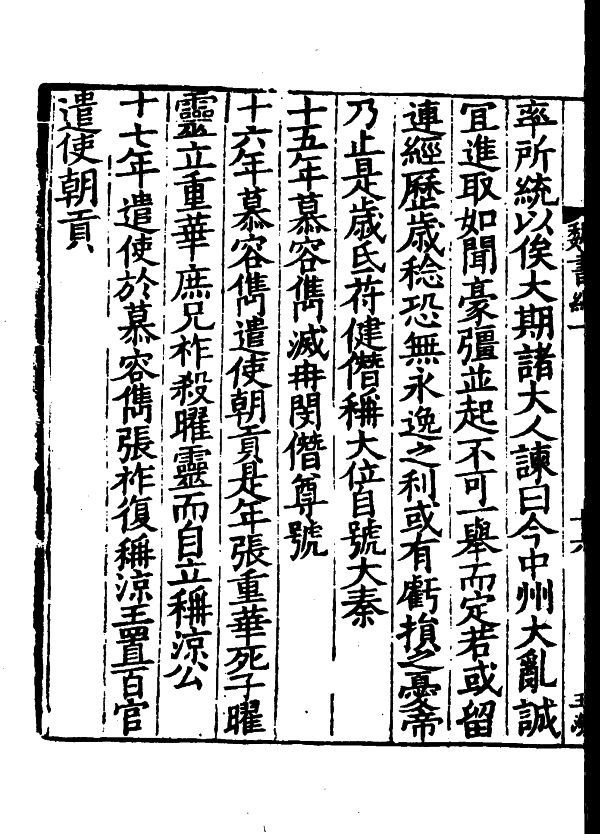 魏書紀一
十六
率所統以俟大期諸大人諫曰今中州大亂誠
宜進取如聞豪彊並起不可一舉而定若或留
連經歷歲稔恐無永逸之利或有虧損之憂帝
乃止是歲氐苻健僭稱大位自號大秦
十五年慕容儁滅冉閔僭尊號
十六年慕容儁遣使朝貢是年張重華死子曜
靈立重華庶兄祚殺曜靈而自立稱涼公
十七年遣使於慕容儁張祚復稱涼王置百官
遣使朝貢